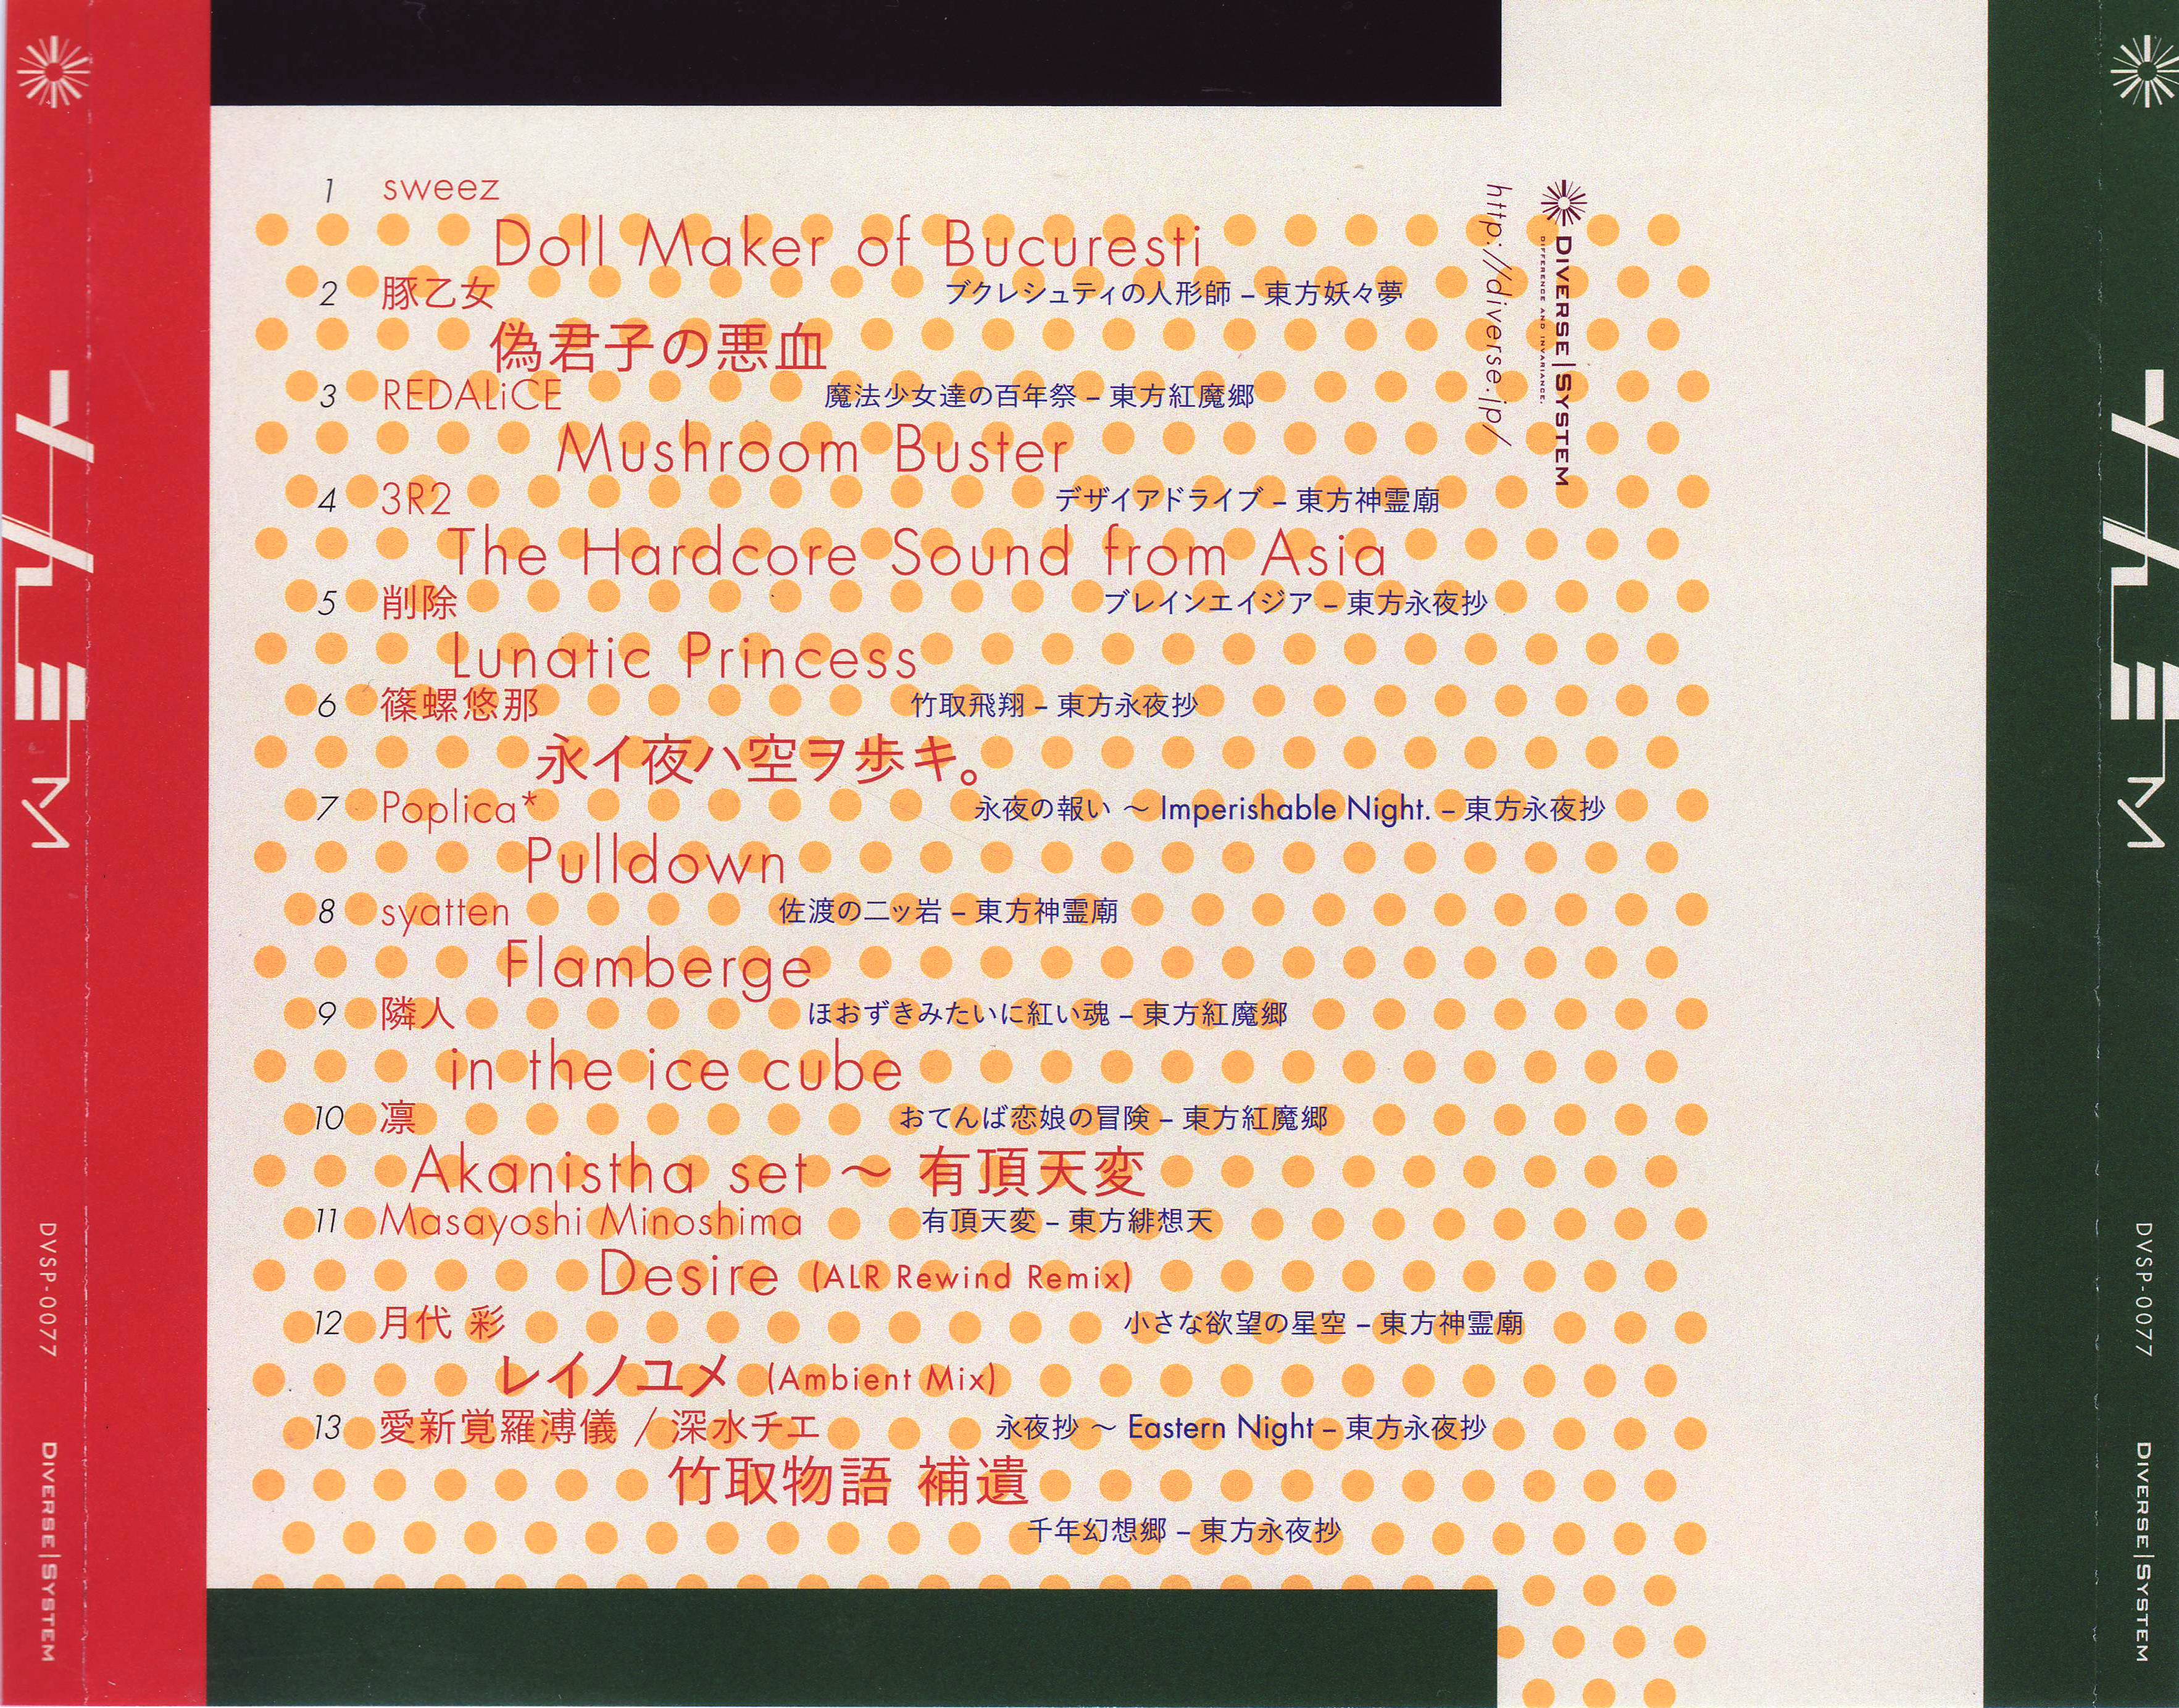 1 sweez
Doll Maker of Bucuresti
ブクレシュティの人形師 – 東方妖々夢
2 豚乙女
偽君子の悪血
魔法少女達の百年祭 – 東方紅魔郷
3 REDALiCE
Mushroom Buster
デザイアドライブ – 東方神霊廟
4 3R2
The Hardcore Sound from Asia
ブレインエイジア – 東方永夜抄
5 削除
Lunatic Princess
竹取飛翔 – 東方永夜抄
6 篠螺悠那
永イ夜ハ空ヲ歩キ。
永夜の報い ～ Imperishable Night. – 東方永夜抄
7 Poplica*
Pulldown
佐渡の二ッ岩 – 東方神霊廟
8 syatten
Flamberge
ほおずきみたいに紅い魂 – 東方紅魔郷
9 隣人
in the ice cube
おてんば恋娘の冒険 – 東方紅魔郷
10 凛
Akanistha set ～ 有頂天変
有頂天変 – 東方緋想天
11 Masayoshi Minoshima
Desire (ALR Rewind Remix)
小さな欲望の星空 – 東方神霊廟
12 月代 彩
レイノユメ (Ambient Mix)
永夜抄 ～ Eastern Night – 東方永夜抄
13 愛新覚羅溥儀 / 深水チエ
竹取物語 補遺
千年幻想郷 – 東方永夜抄
DIVERSE|SYSTEM
DIFFERENCE AND INVARIANCE.
http://diverse.jp/
DVSP-0077
DIVERSE|SYSTEM
DVSP-0077
DIVERSE|SYSTEM